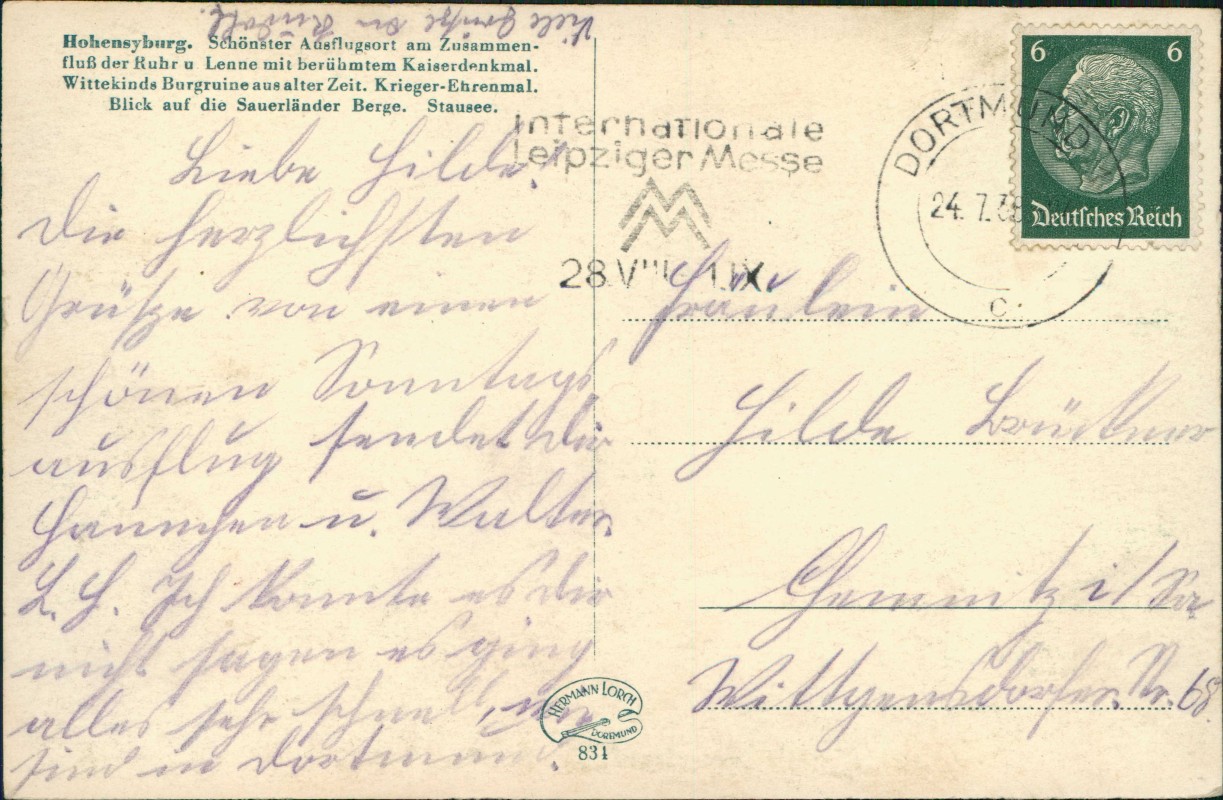 Viele Grüße an
Hohensyburg. Schönster Ausflugsort am Zusammen-
fluß der Ruhr u Lenne mit berühmtem Kaiserdenkmal.
Wittekinds Burgruine aus alter Zeit. Krieger-Ehrenmal.
Blick auf die Sauerländer Berge. Stausee.
Liebe Hilde!
Die herzlichsten
Grüße von einen
schönen Sonntags
ausflug sendet Dir
Hannchen u. Walter.
L. H. Ich konnte es dir
nicht sagen es ging
alles sehr schnell, wir
sind in Dortmund.
Internationale
Leipziger Messe
MM
28.VIII. 1.IX.
DORTMUND
24.7.38
c
6 6
Deutsches Reich
Fräulein
Hilde Brückner
Chemnitz i/Sa
Wittgensdorfer Str. 68
HERMANN LORCH
DORTMUND
831